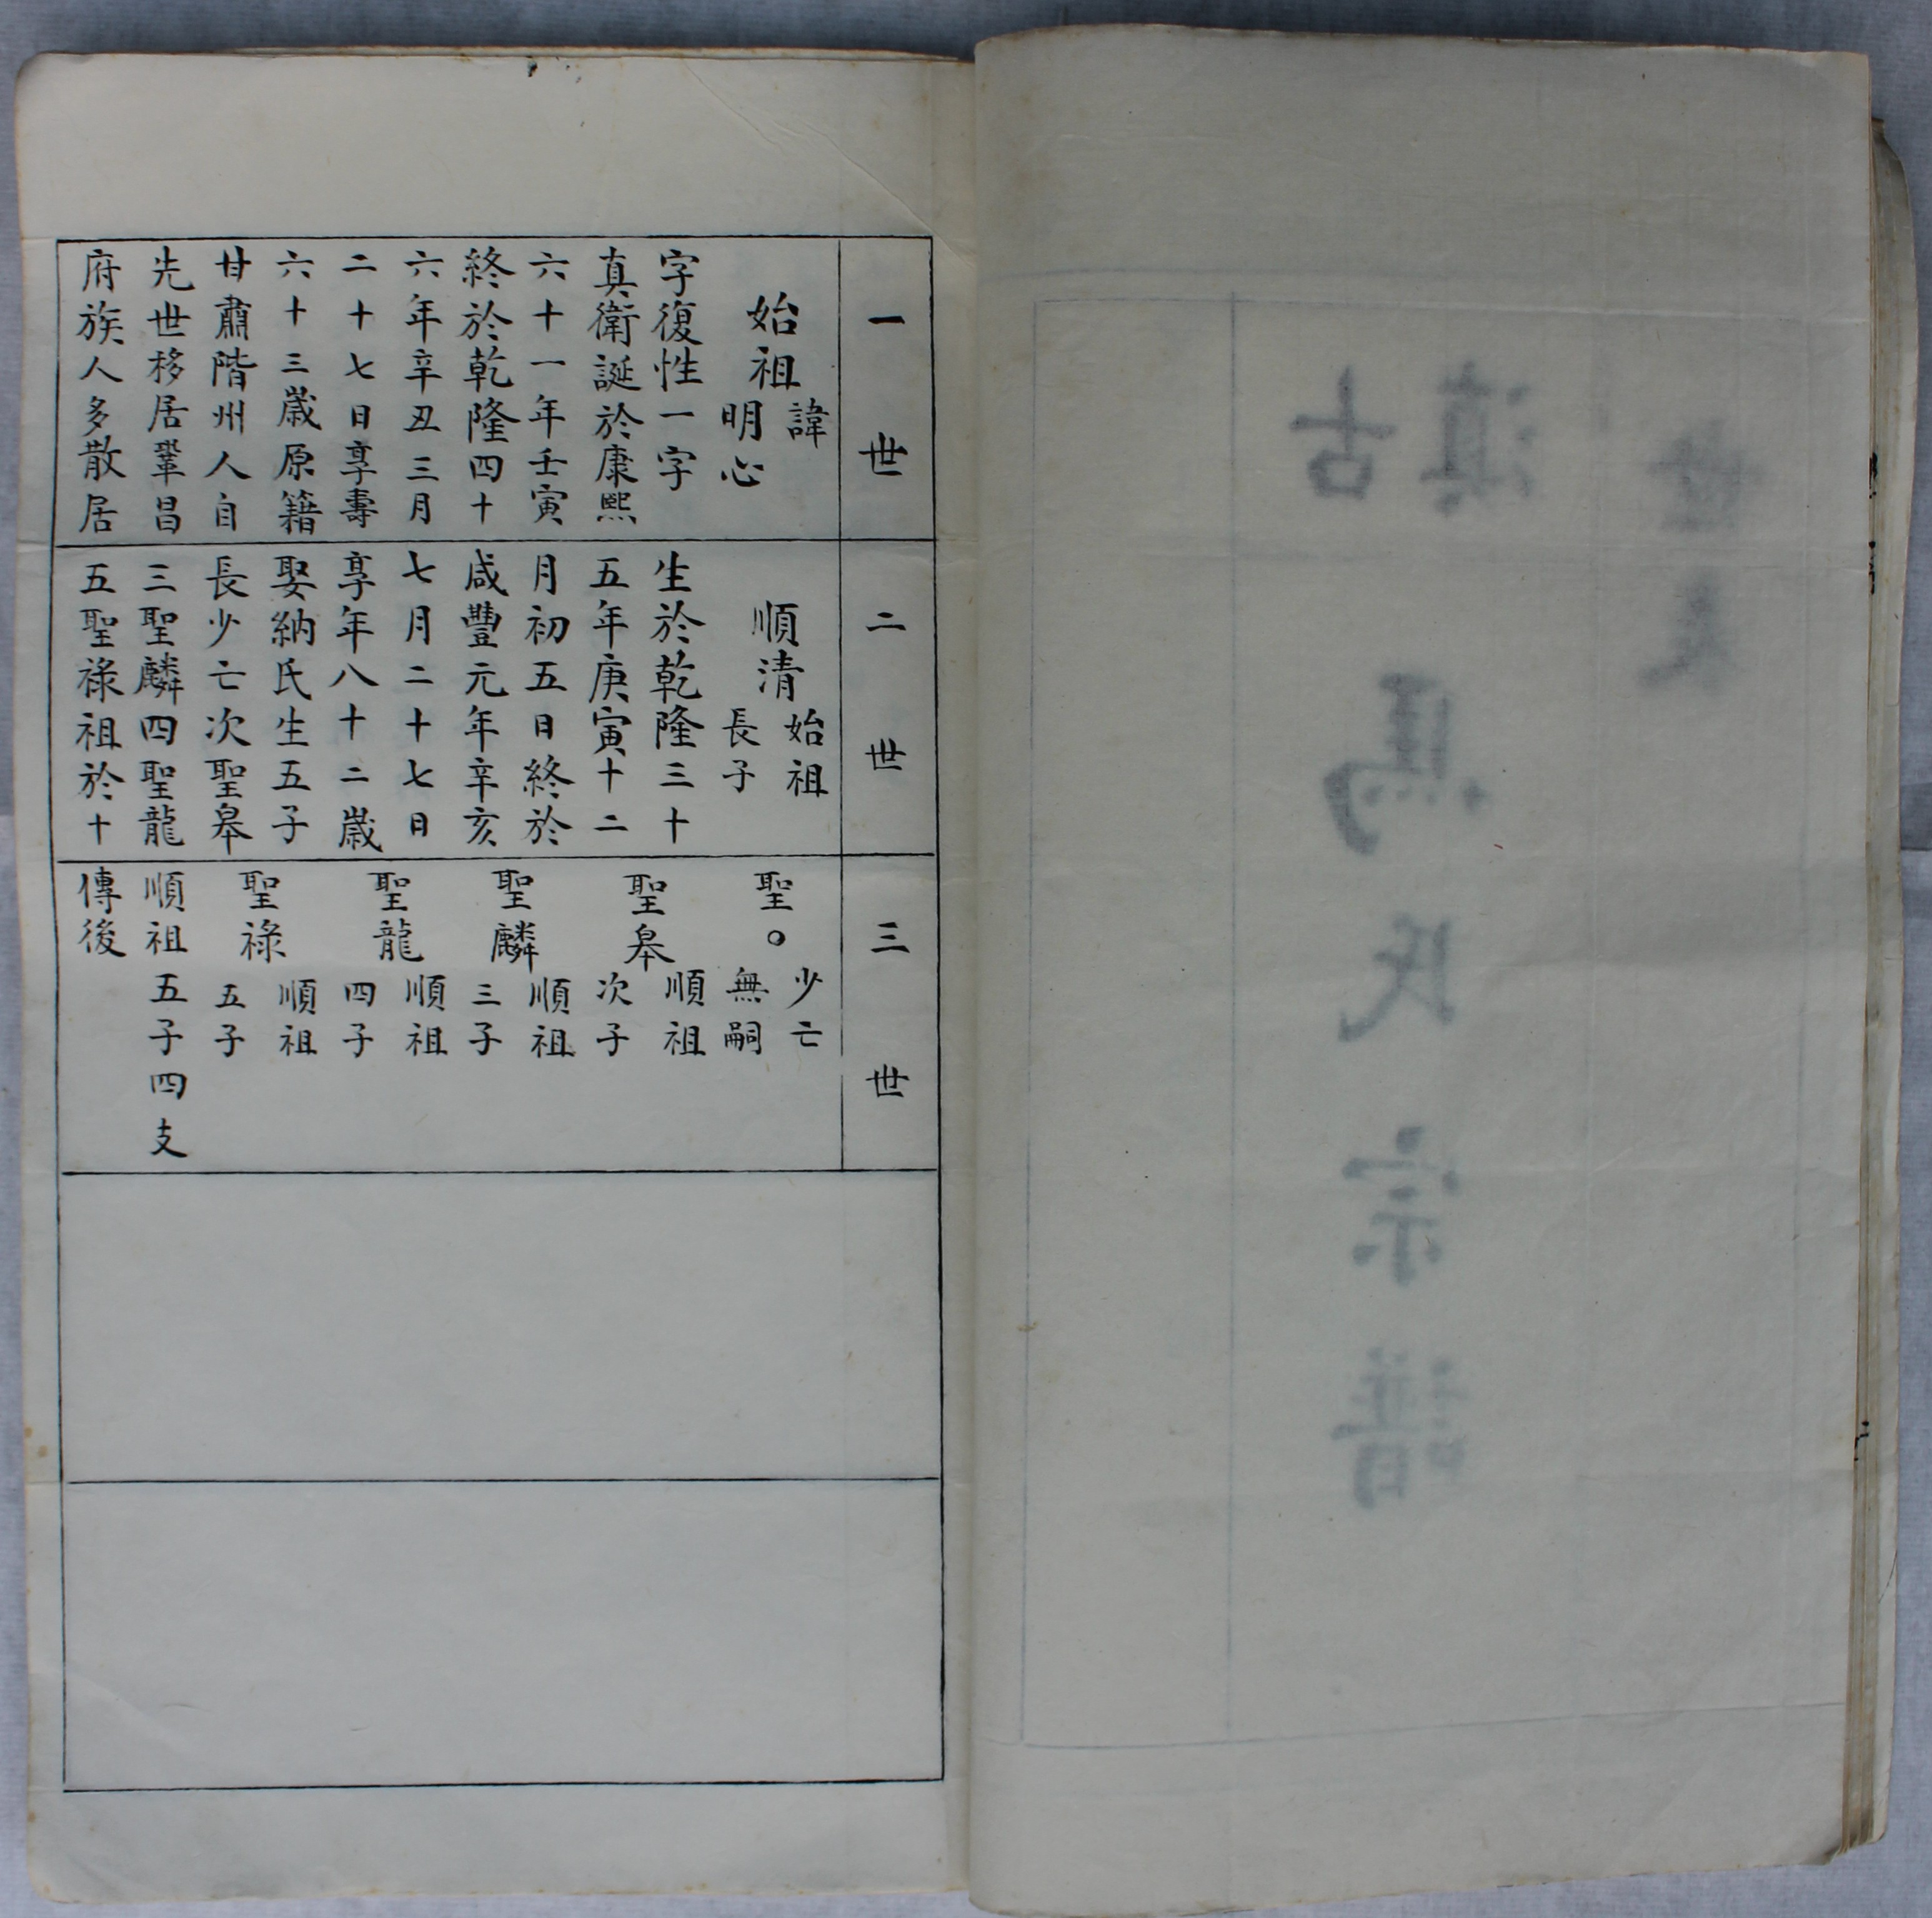 世表
古滇
馬氏宗譜
一世
始祖
諱
明心
字復性一字
真衛誕於康熙
六十一年壬寅
終於乾隆四十
六年辛丑三月
二十七日享壽
六十三歲原籍
甘肅階州人自
先世移居鞏昌
府族人多散居
二世
順清
始祖
長子
生於乾隆三十
五年庚寅十二
月初五日終於
咸豐元年辛亥
七月二十七日
享年八十二歲
娶納氏生五子
長少亡次聖皋
三聖麟四聖龍
五聖祿祖於十
三世
聖○
少亡
無嗣
聖皋
順祖
次子
聖麟
順祖
三子
聖龍
順祖
四子
聖祿
順祖
五子
順祖五子四支
傳後